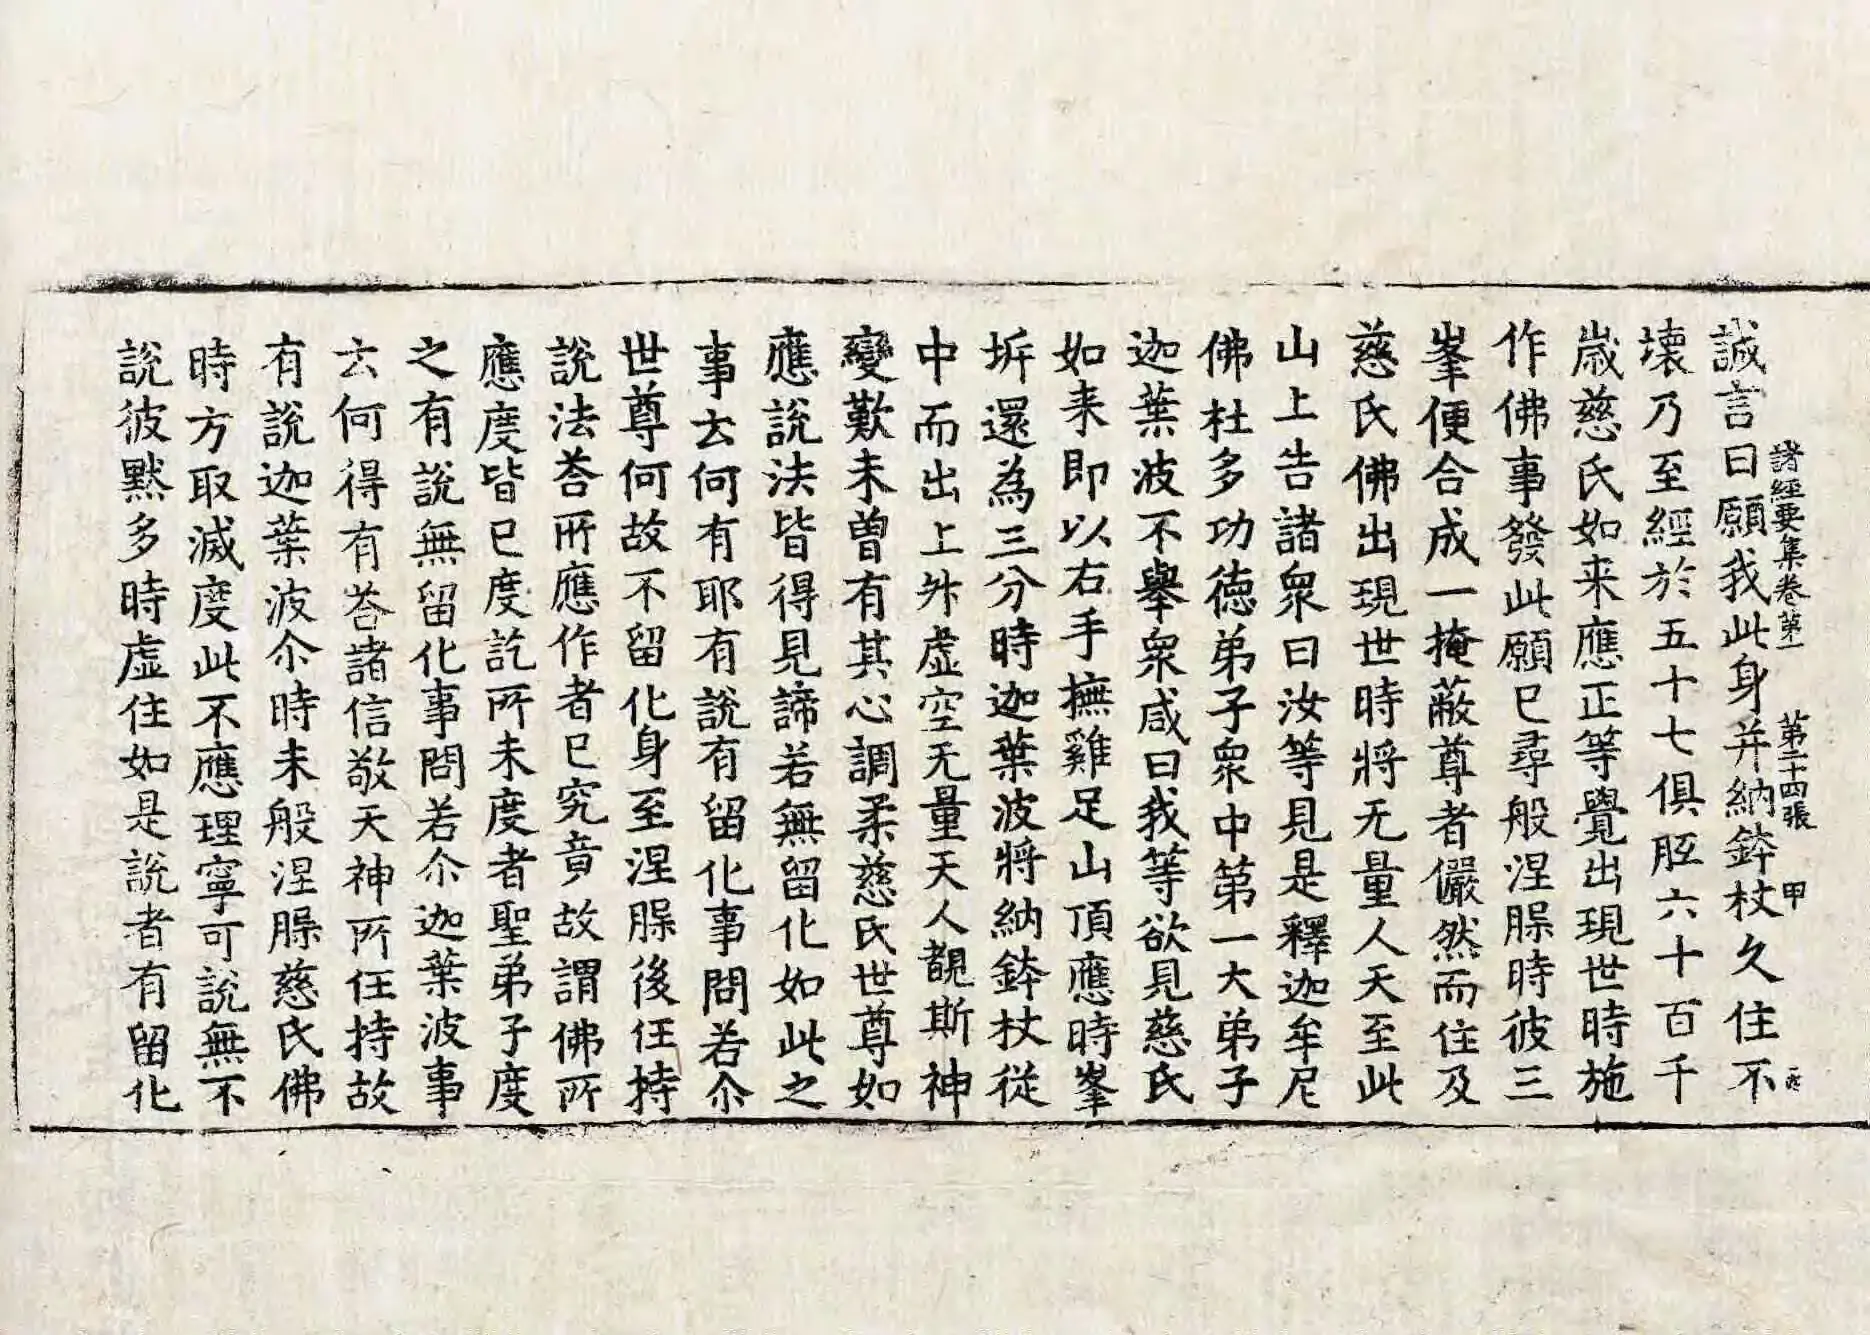 誠言曰願我此身并納鉢杖久住不
諸經要集卷第一　第二十四張　甲
壊乃至經於五十七俱胝六十百千
嵗慈氏如来應正等覺出現世時施
作佛事發此願已尋般涅䏶時彼三
峯便合成一掩蔽尊者儼然而住及
慈氏佛出現世時將无量人天至此
山上告諸衆曰汝等見是釋迦牟尼
佛杜多功德弟子衆中第一大弟子
迦葉波不舉衆咸曰我等欲見慈氏
如来即以右手撫雞足山頂應時峯
坼還為三分時迦葉波將納鉢杖從
中而出上昇虚空无量天人覩斯神
變歎未曽有其心調柔慈氏世尊如
應說法皆得見諦若無留化如此之
事云何有耶有說有留化事問若尒
世尊何故不留化身至涅䏶後任持
說法荅所應作者已究竟故謂佛所
應度皆已度訖所未度者聖弟子度
之有說無留化事問若尒迦葉波事
云何得有荅諸信敬天神所任持故
有說迦葉波尒時未般涅䏶慈氏佛
時方取滅度此不應理寧可說無不
說彼黙多時虚住如是說者有留化